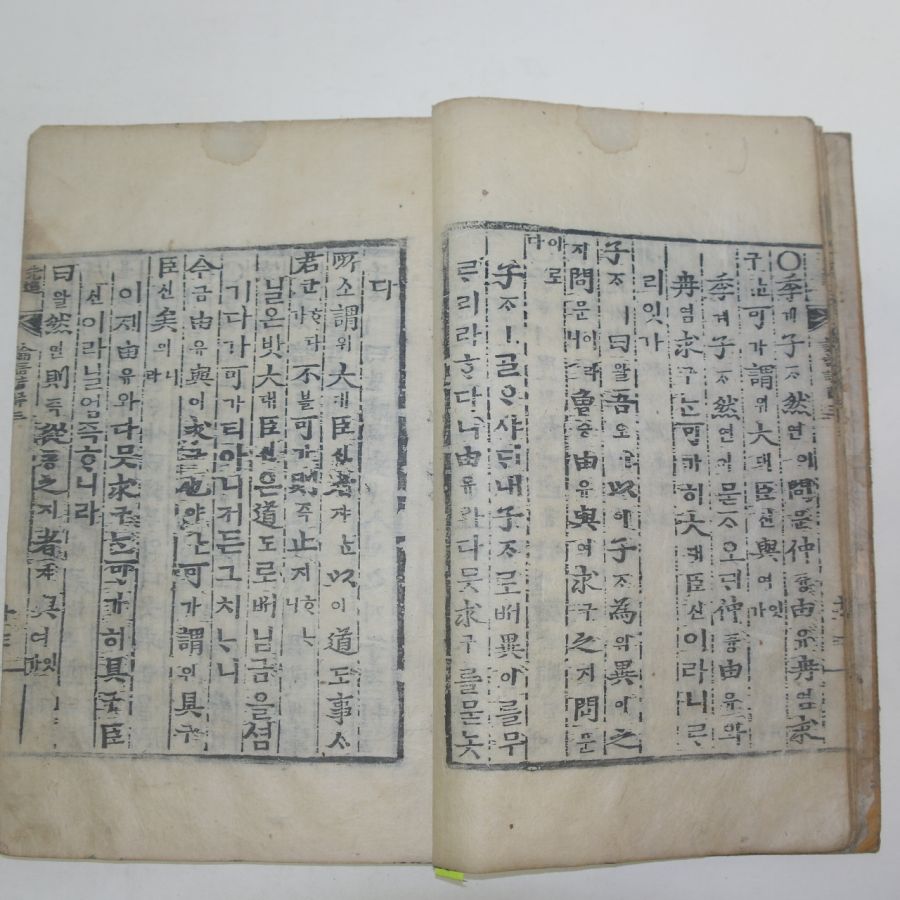 ○季계子ᄌᆞ然연이問문仲듕由유冉염求
구ᄂᆞᆫ可가謂위大대臣신與여잇가
季계子ᄌᆞ然연이묻ᄌᆞ오ᄃᆡ仲듕由유와
冉염求구ᄂᆞᆫ可가히大대臣신이라니ᄅᆞ
리잇가
子ᄌᆞㅣ曰왈吾오ㅣ以이子ᄌᆞ為위異이之
지問문이라니曾증由유與여求구之지問문
이로다
子ᄌᆞㅣᄀᆞᆯᄋᆞ샤ᄃᆡ내子ᄌᆞ로ᄡᅥ異이를무
르리라ᄒᆞ다니由유와다ᄆᆞᆺ求구를묻놋
다
所소謂위大대臣신者쟈ᄂᆞᆫ以이道도事ᄉᆞ
君군ᄒᆞ다가不불可가則즉止지ᄒᆞᄂᆞ니
닐온밧大대臣신은道도로ᄡᅥ님금을셤
기다가可가티아니커든그치ᄂᆞ니
今금由유與여求구也야ᄂᆞᆫ可가謂위具구
臣신矣의니라
이제由유와다ᄆᆞᆺ求구ᄂᆞᆫ可가히具구臣
신이라닐엄즉ᄒᆞ니라
曰왈然연則즉從죵之지者쟈與여ㅣ잇가